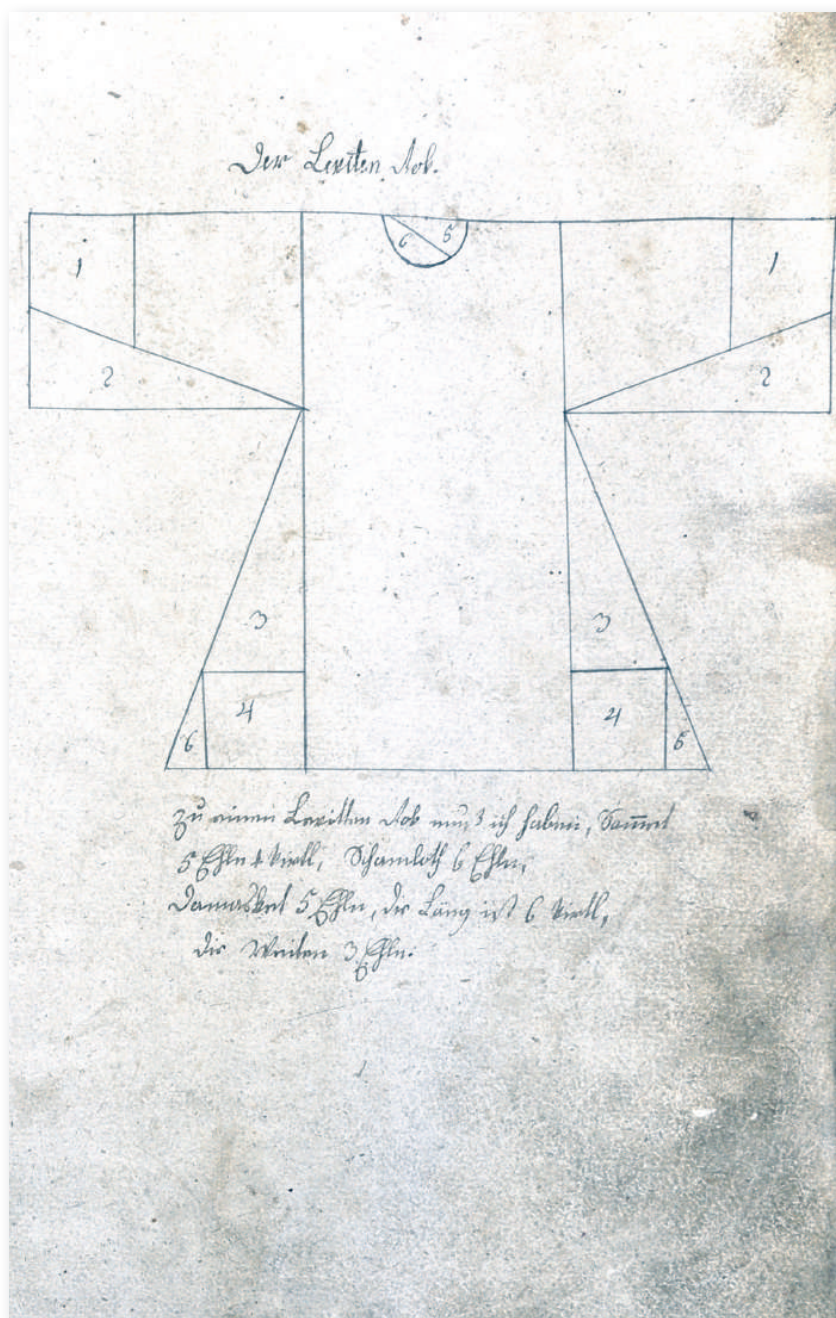 Der Leviten Rok.
6 5
1 1
2 2
3 3
4 4
6 5
zu einen Levitten Rok muß ich haben, Sammet
5 Ehln 1 virtl, Schamloth 6 Ehln,
Damasket 5 Ehln, die Läng ist 6 virtl,
die Weiten 3 Ehln.